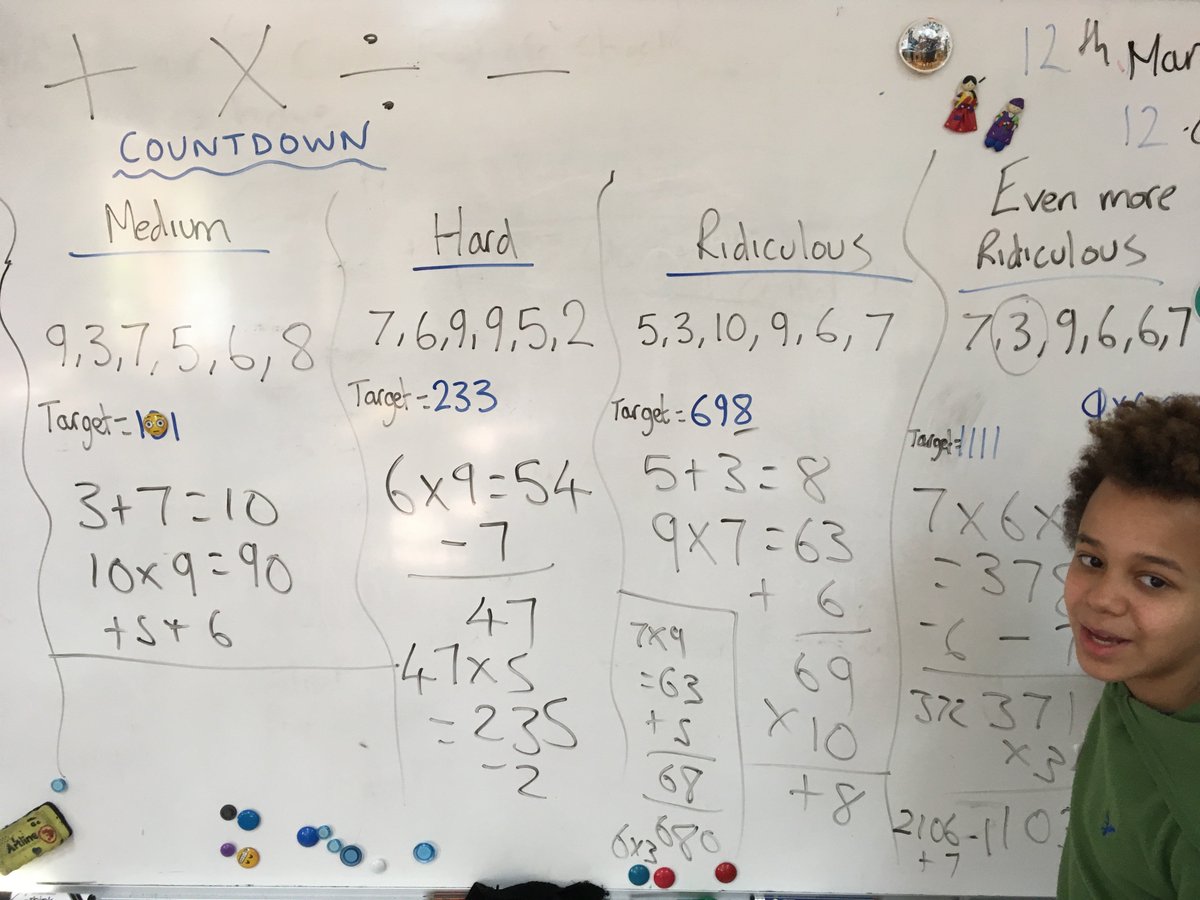 + × ÷ −
12th Mar
12
COUNTDOWN
Medium
9,3,7,5,6,8
Target=101
3+7=10
10×9=90
+5+6
Hard
7,6,9,9,5,2
Target=233
6×9=54
-7
47
47×5
=235
-2
Ridiculous
5,3,10,9,6,7
Target=698
5+3=8
9×7=63
+ 6
69
×10
+8
7×9
=63
+5
68
6×3 680
Even more
Ridiculous
7,3,9,6,6,7
Target=1111
7×6×
=378
-6 -7
372 371
×3
2106-110
+7
Artline